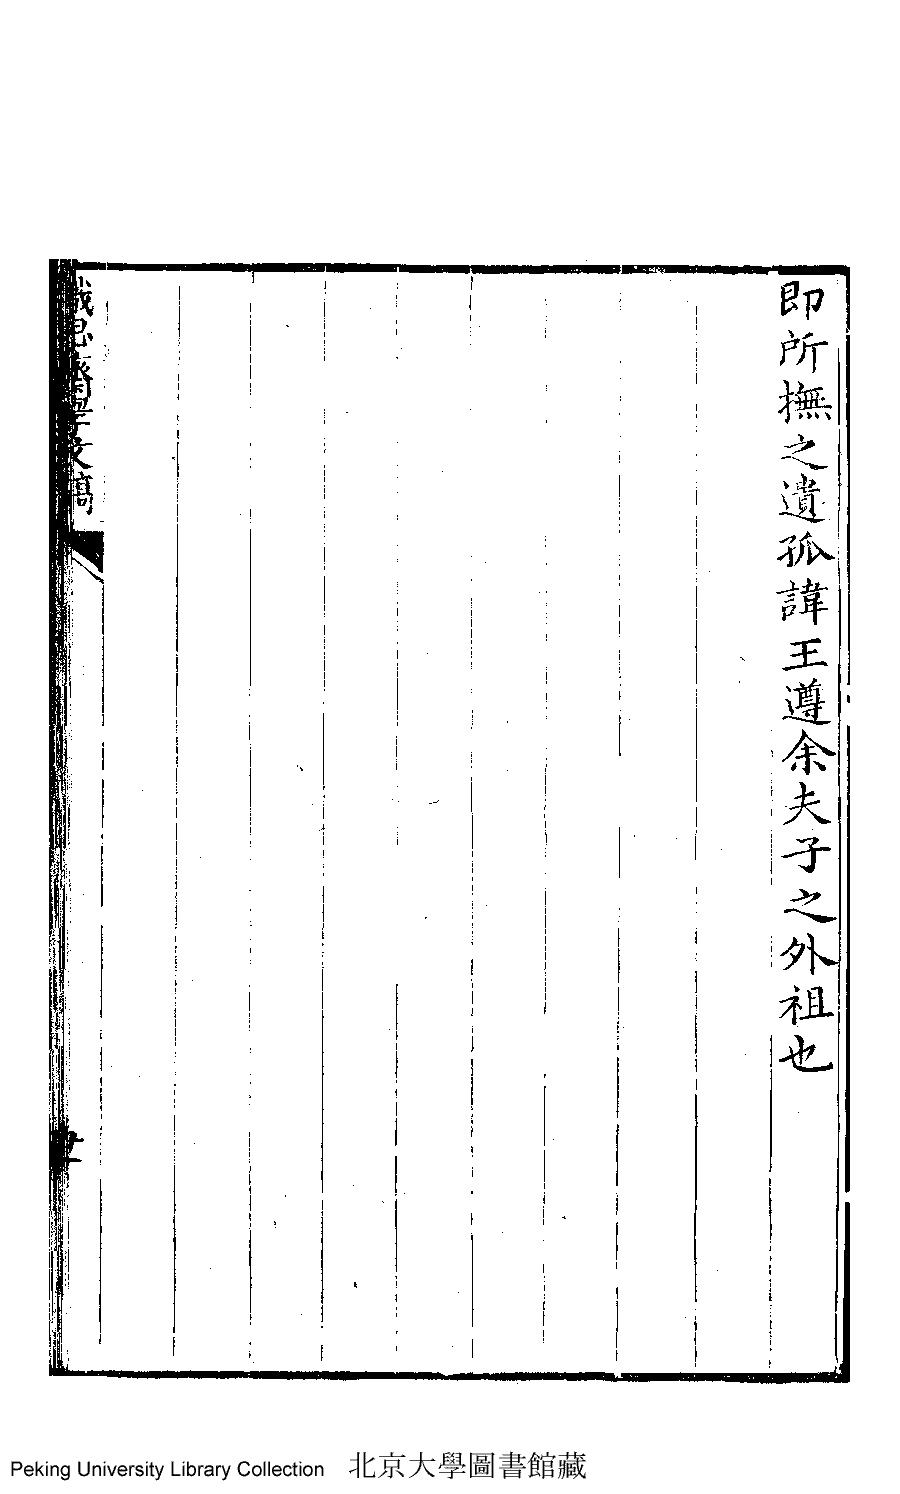 即所撫之遺孤諱王遵余夫子之外祖也
思齋文稿
Peking University Library Collection 北京大學圖書館藏